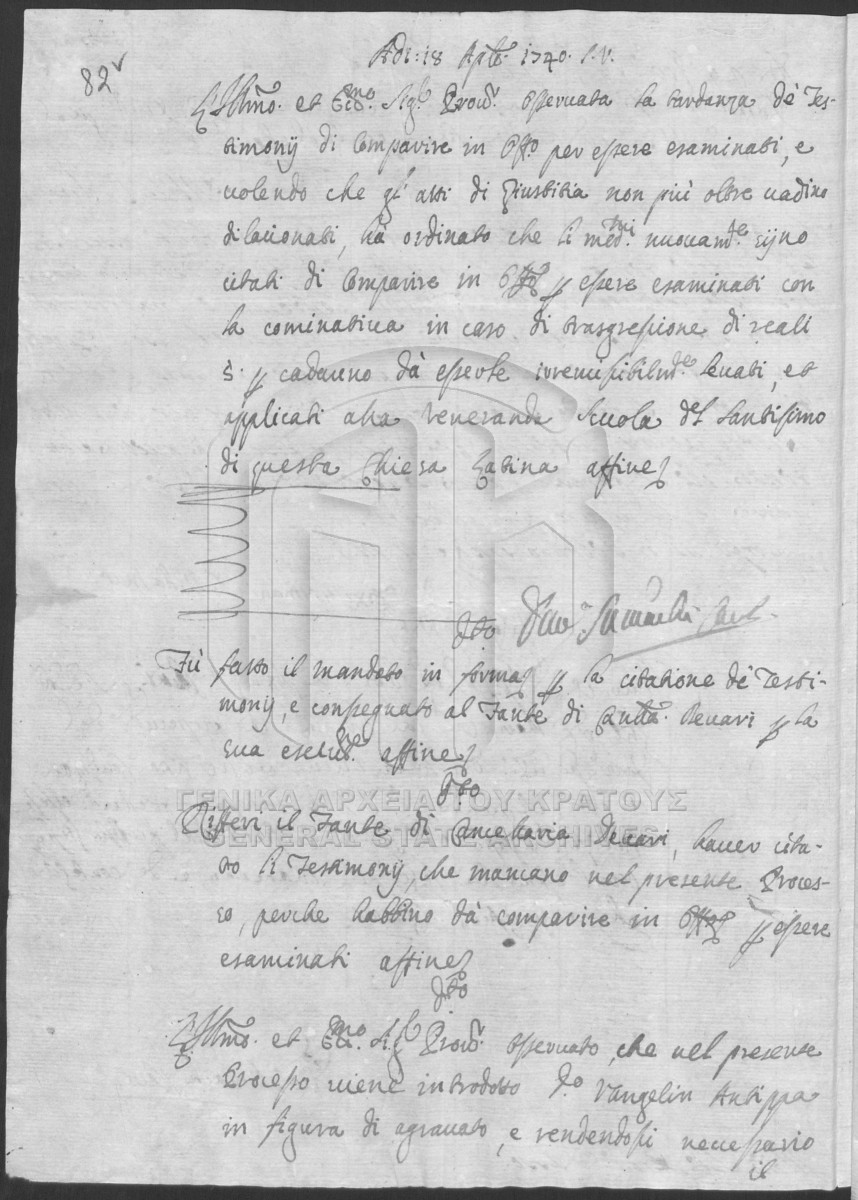 82v
Adi: 18 Aple. 1740. S.V.
L'Illmo. et Eccmo. Sigr. Provr. osservata la tardanza de Tes-
timonij di comparire in Offo. per essere esaminati, e
volendo che gl' atti di Giustitia non più oltre vadino
dilacionati, hà ordinato che li medmi. nuovamte. sijno
citati di comparire in Offo. p essere esaminati con
la cominativa in caso di trasgressione di reali
5. p cadauno dà esserle irremisibilmte. levati, et
applicati alla Veneranda Scuola del Santissimo
di questa Chiesa Latina affine
Fù fatto il mandato in forma p la citatione de Testi-
monij, e consegnato al Fante di Canclla. Devari p la
sua esecutne. affine
Rifferì il Fante di Cancellaria Devari, haver cita-
to li Testimonij, che mancano nel presente Proces-
so, perche habbino dà comparire in Offo. p essere
esaminati affine
L'Illmo. et Eccmo. Sigr. Provr. osservato, che nel presente
Processo viene introdotto Do. Vangelin Antippa
in figura di agravato, e rendendosi necessario
il
ΓΕΝΙΚΑ ΑΡΧΕΙΑ ΤΟΥ ΚΡΑΤΟΥΣ
GENERAL STATE ARCHIVES